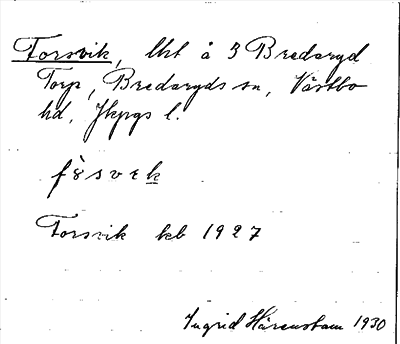 Forsvik, lht å 3 Bredaryd
Torp, Bredaryds sn, Västbo
hd, Jkpgs l.
fòsvɛk
Forsvik kb 1927
Ingrid Härenstam 1930